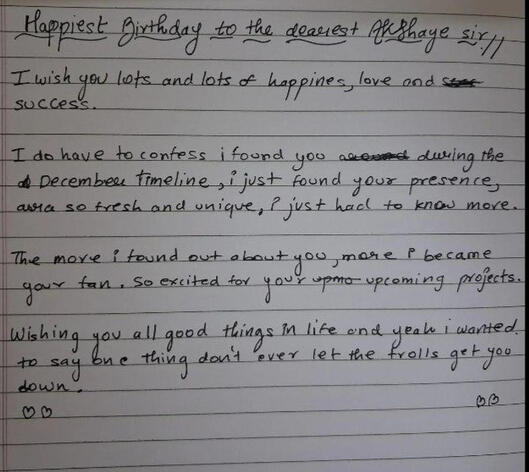 Happiest Birthday to the dearest Akshaye sir//
I wish you lots and lots of happines, love and
success.
I do have to confess i found you during the
December timeline, i just found your presence,
aura so fresh and unique, i just had to know more.
The more i found out about you, more i became
your fan. So excited for your upcoming projects.
Wishing you all good things in life and yeah i wanted
to say one thing don't ever let the trolls get you
down.
♡♡ ♡♡